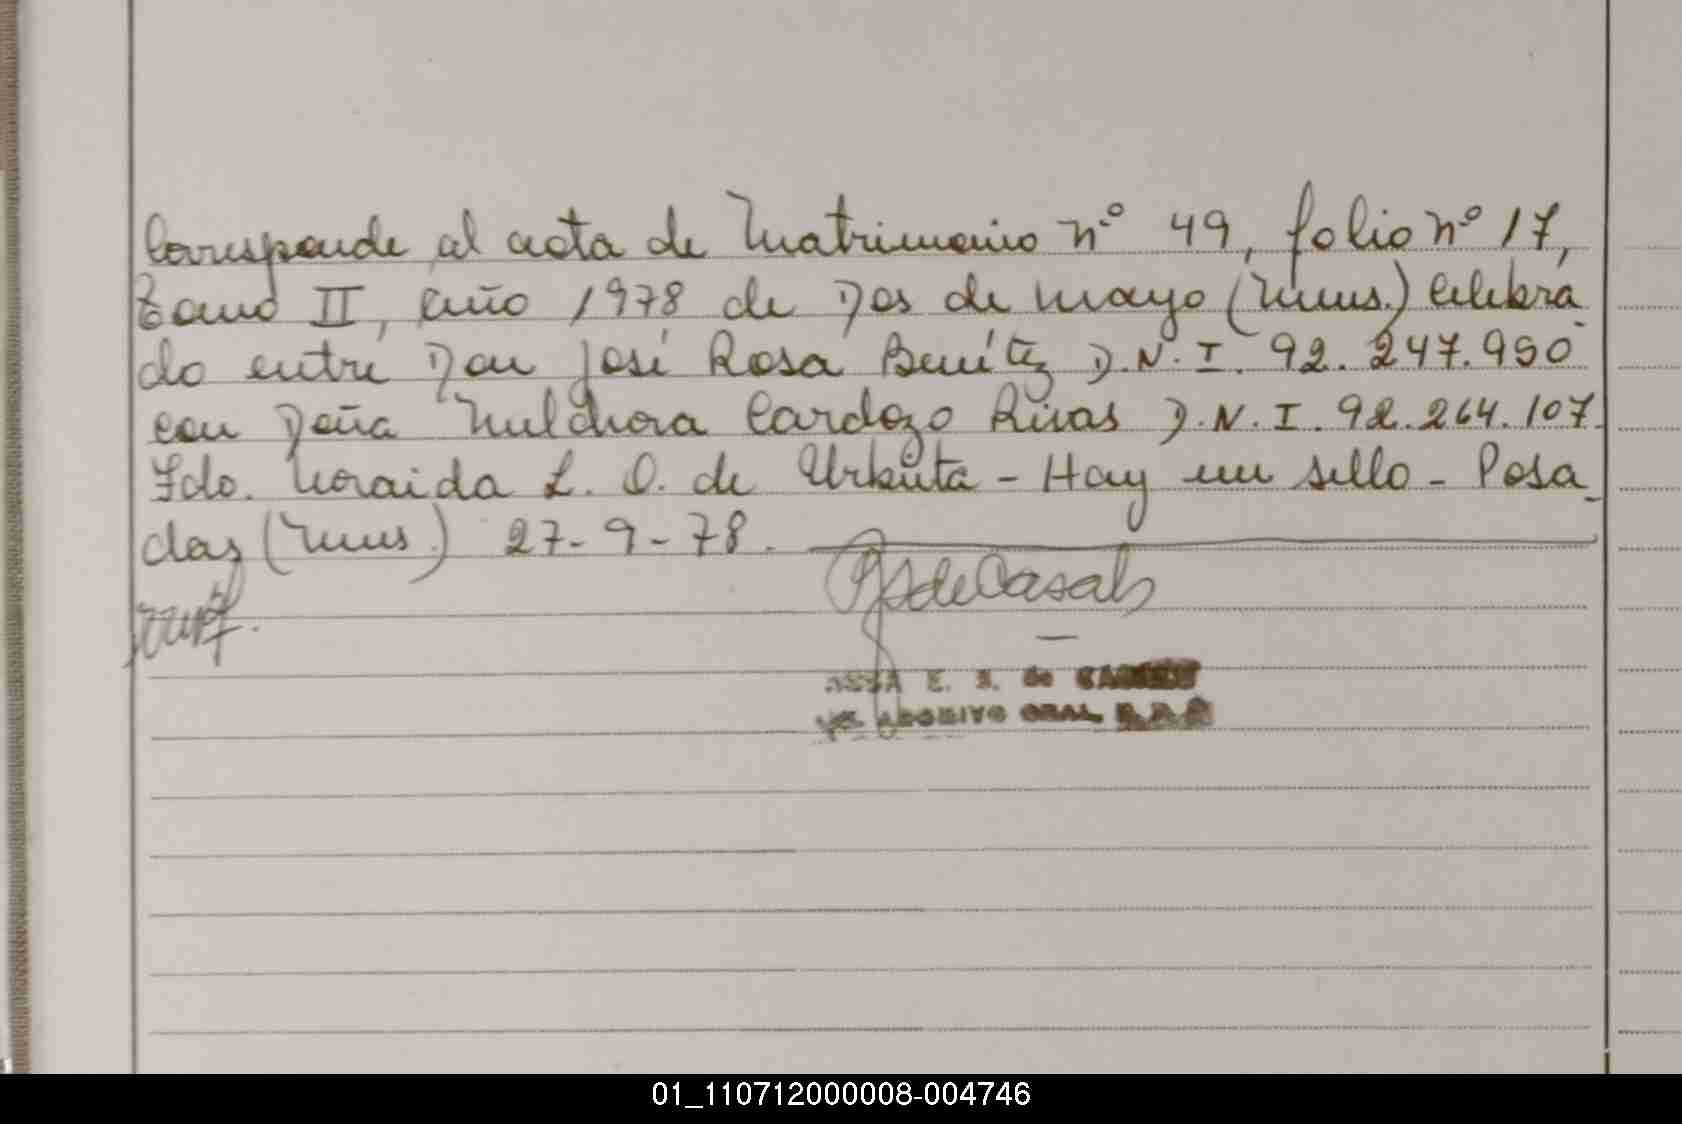 Corresponde al acta de Matrimonio nº 49, folio nº 17,
tomo II, año 1978 de Dos de Mayo (Mnes.) Celebra
do entre Don José Rosa Benítez D.N.I. 92.247.950
con Doña Melchora Cardozo Rivas D.N.I. 92.264.107.
Fdo. Zoraida L. O. de Urbieta - Hay un sello - Posa
das (Mnes.) 27-9-78.
de Casals
E. S. de
ARCHIVO GRAL
01_110712000008-004746